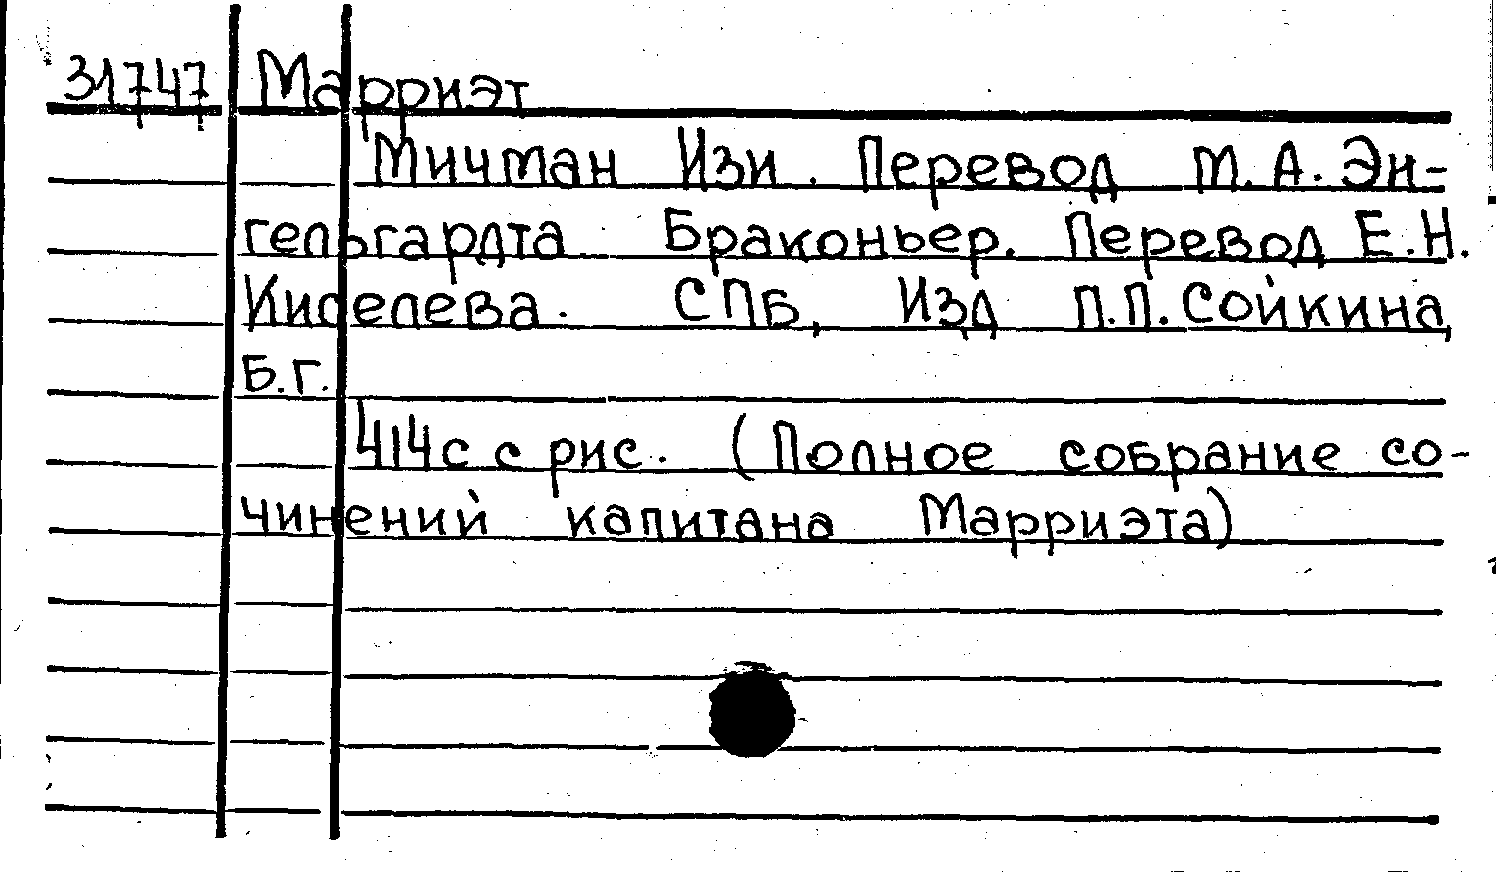 31747 Марриэт
Мичман Изи. Перевод М.А. Эн-
гельгардта Браконьер. Перевод Е.Н.
Киселева. СПБ, Изд П.П. Сойкина,
Б.г.
414с с рис. (Полное собрание со-
чинений капитана Марриэта)